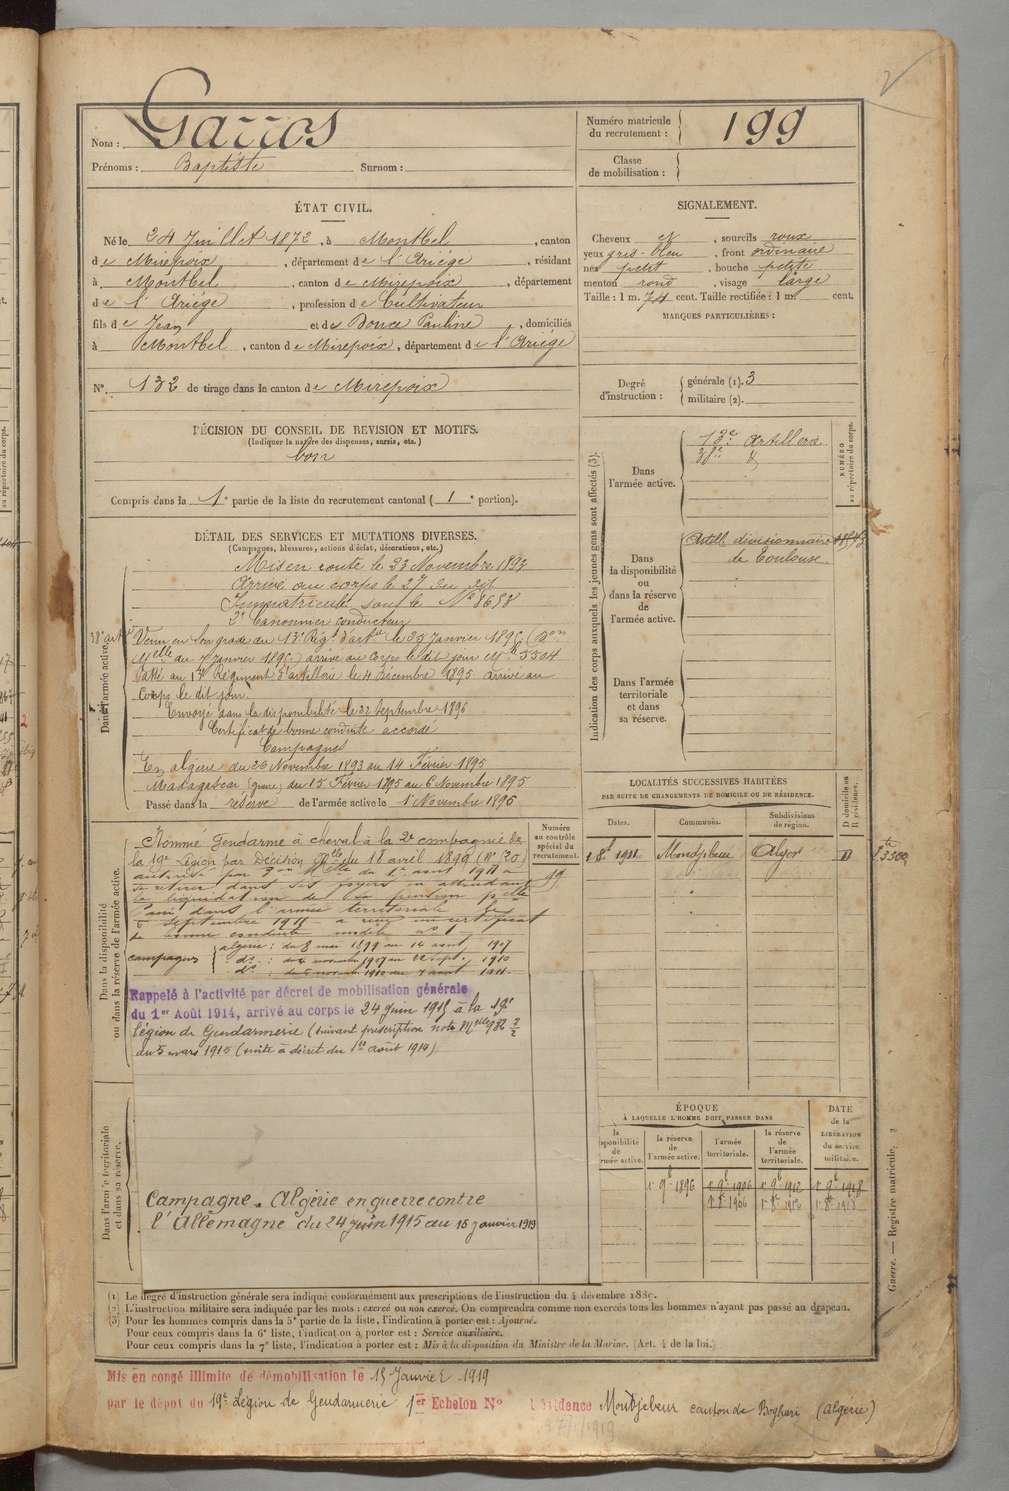 Nom : Garros
Prénoms : Baptiste Surnom :
Numéro matricule du recrutement : 199
Classe de mobilisation :
ÉTAT CIVIL.
Né le 24 Juillet 1872, à Montbel, canton
de Mirepoix, département de l'Ariége, résidant
à Montbel, canton de Mirepoix, département
de l'Ariége, profession de Cultivateur
fils de Jean et de Douce Pauline, domiciliés
à Montbel, canton de Mirepoix, département de l'Ariége
N° 132 de tirage dans le canton de Mirepoix
SIGNALEMENT.
Cheveux et, sourcils roux
yeux gris-bleu, front ordinaire
nez petit, bouche petite
menton rond, visage large
Taille : 1 m. 74 cent. Taille rectifiée : 1 m. cent.
MARQUES PARTICULIÈRES :
Degré d'instruction : générale (1). 3
militaire (2).
DÉCISION DU CONSEIL DE REVISION ET MOTIFS.
(Indiquer la nature des dispenses, sursis, etc.)
bon
Compris dans la 1e partie de la liste du recrutement cantonal ( 1e portion).
DÉTAIL DES SERVICES ET MUTATIONS DIVERSES.
(Campagnes, blessures, actions d'éclat, décorations, etc.)
Dans l'armée active.
Mis en route le 23 Novembre 1893
Arrivé au corps le 27 du dit
Immatriculé sous le N° 8698
2e Canonnier conducteur
38e artie
Venu en son grade du 13e Régt d'artie le 25 Janvier 1895 (Don
Melle du 7 Janvier 1895) arrivé au Corps le dit jour Mle 5504
Passé au 13e Régiment d'artillerie le 4 Décembre 1895 arrivé au
Corps le dit jour.
Envoyé dans la disponibilité le 22 Septembre 1896
Certificat de bonne conduite accordé
Campagnes
En algérie du 26 Novembre 1893 au 14 Février 1895
Madagascar (guerre) du 15 Février 1895 au 6 Novembre 1895
Passé dans la réserve de l'armée active le 1er Novembre 1896
Indication des corps auxquels les jeunes gens sont affectés (3).
NUMÉRO au répertoire du corps.
Dans l'armée active.
13e Artillerie
38e d°
Dans la disponibilité ou dans la réserve de l'armée active.
Artell. divisionnaire
de Toulouse
Dans l'armée territoriale et dans sa réserve.
LOCALITÉS SUCCESSIVES HABITÉES
PAR SUITE DE CHANGEMENTS DE DOMICILE OU DE RÉSIDENCE.
Dates. Communes. Subdivisions de région. D domicile ou R résidence.
1911 Mondjebeur Alger D
Dans la disponibilité ou dans la réserve de l'armée active.
Numéro au contrôle spécial du recrutement.
Nommé Gendarme à cheval à la 2e compagnie de
la 19e Légion par Décision Mlle du 18 avril 1899 (N° 20)
autorisé par Don Melle du 1er août 1911 à
se retirer dans ses foyers en attendant
la liquidation de sa pension pelle
Passé dans l'armée territoriale le
Septembre 1911 a reçu un certificat
de bonne conduite modèle n° 1
campagnes
algérie : du 8 mai 1899 au 14 août 1907
d° : du 4 novembre 1907 au 22 sept. 1910
d° : du 5 novemb 1910 au 7 août 1911
Rappelé à l'activité par décret de mobilisation générale
du 1er Août 1914, arrivé au corps le 24 juin 1915 à la 19e
Légion de Gendarmerie (suivant prescription note Melle 982 2/3
du 5 mars 1915 (suite à décret du 1er août 1914)
Dans l'armée territoriale et dans sa réserve.
Campagne. Algérie en guerre contre
l'Allemagne du 24 juin 1915 au 15 janvier 1919
ÉPOQUE
À LAQUELLE L'HOMME DOIT PASSER DANS
la réserve de l'armée active.
l'armée territoriale.
la réserve de l'armée territoriale.
DATE de la LIBÉRATION du service militaire.
1er 9bre 1896 1er 9bre 1906 1er 9bre 1912 1er 9bre 1918
1906 1912 1918
(1) Le degré d'instruction générale sera indiqué conformément aux prescriptions de l'instruction du 4 décembre 1889.
(2) L'instruction militaire sera indiquée par les mots : exercé ou non exercé. On comprendra comme non exercés tous les hommes n'ayant pas passé au drapeau.
(3) Pour les hommes compris dans la 5e partie de la liste, l'indication à porter est : Ajourné.
Pour ceux compris dans la 6e liste, l'indication à porter est : Service auxiliaire.
Pour ceux compris dans la 7e liste, l'indication à porter est : Mis à la disposition du Ministre de la Marine. (Art. 4 de la loi.)
Guerre. — Registre matricule. 2
Mis en congé illimité de démobilisation le 15 Janvier 1919
par le dépôt du 19e Légion de Gendarmerie 1er Echelon N° Résidence Mondjebeur canton de Boghari (Algérie)